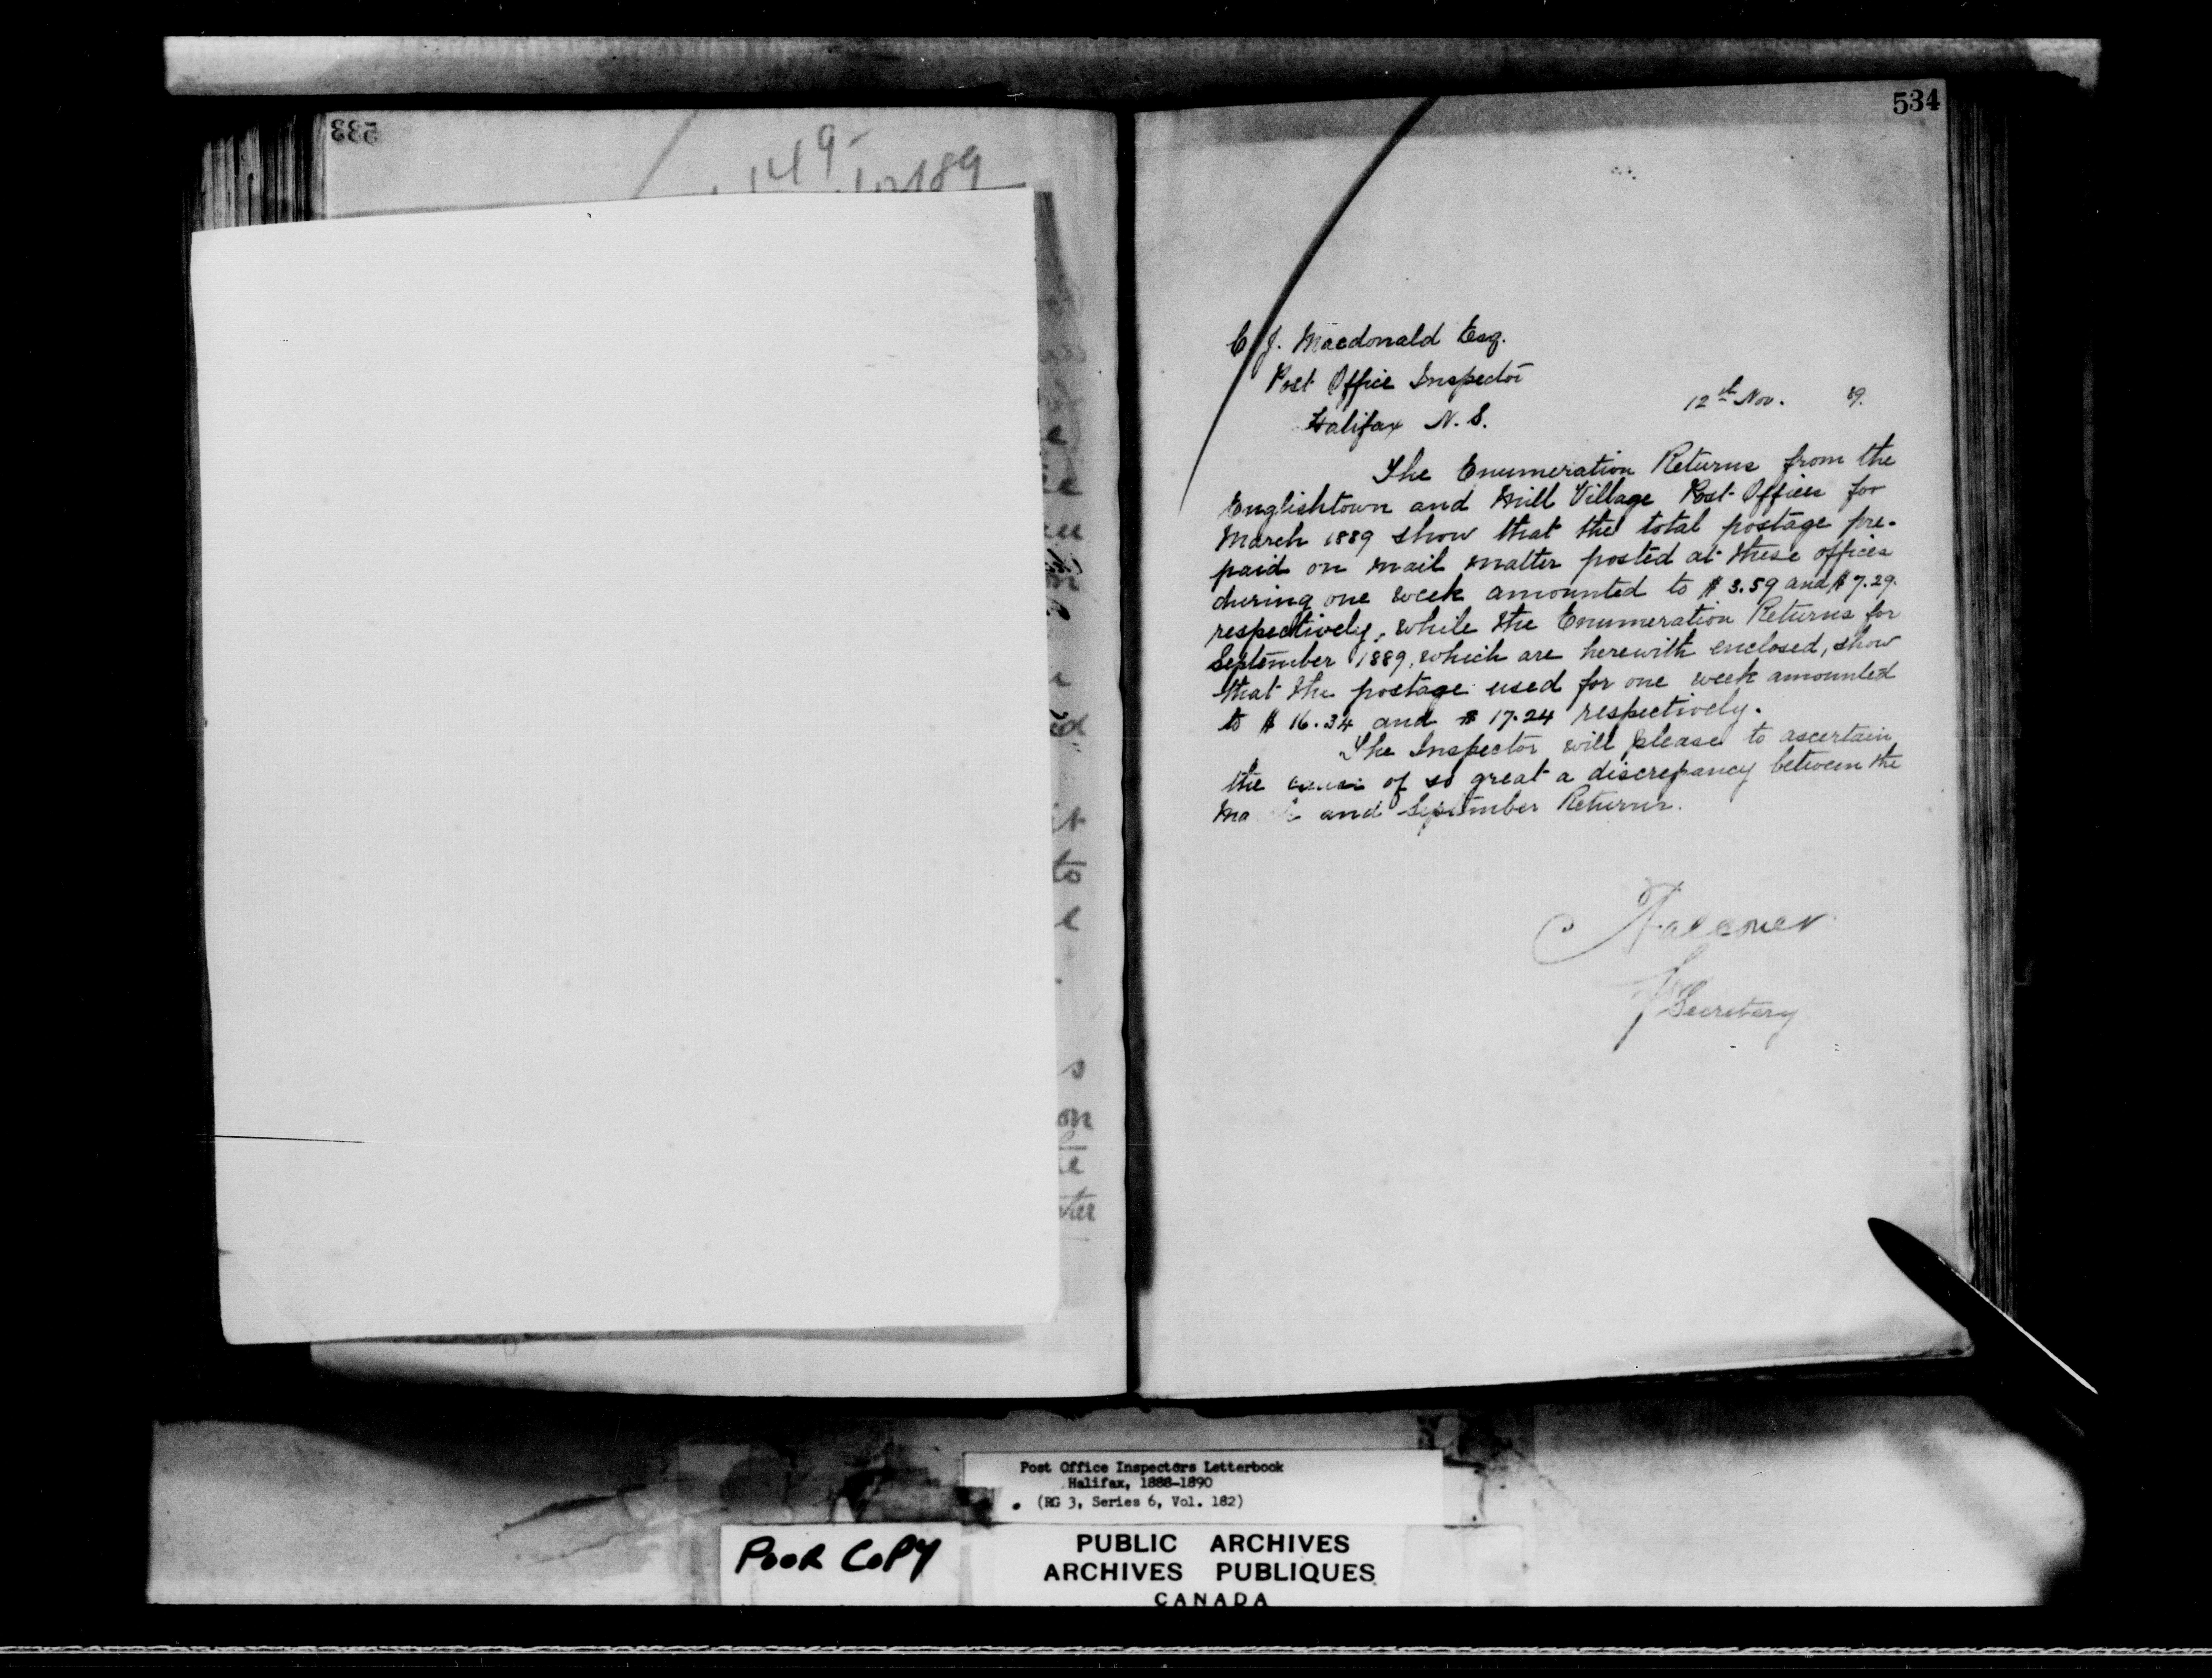 533
149-
189
534
C. J. Macdonald Esq.
Post Office Inspector
Halifax N. S.
12th Nov. 89.
The Enumeration Returns from the
Englishtown and Mill Village Post Offices for
March 1889 show that the total postage pre-
paid on mail matter posted at these offices
during one week amounted to $ 3.59 and $ 7.29.
respectively, while the Enumeration Returns for
September 1889, which are herewith enclosed, show
that the postage used for one week amounted
to $ 16.34 and $ 17.24 respectively.
The Inspector will please to ascertain
the cause of so great a discrepancy between the
Ma h and September Returns.
Falconer
Secretary
to
on
Post Office Inspectors Letterbook
Halifax, 1888-1890
(RG 3, Series 6, Vol. 182)
POOR COPY
PUBLIC ARCHIVES
ARCHIVES PUBLIQUES
CANADA